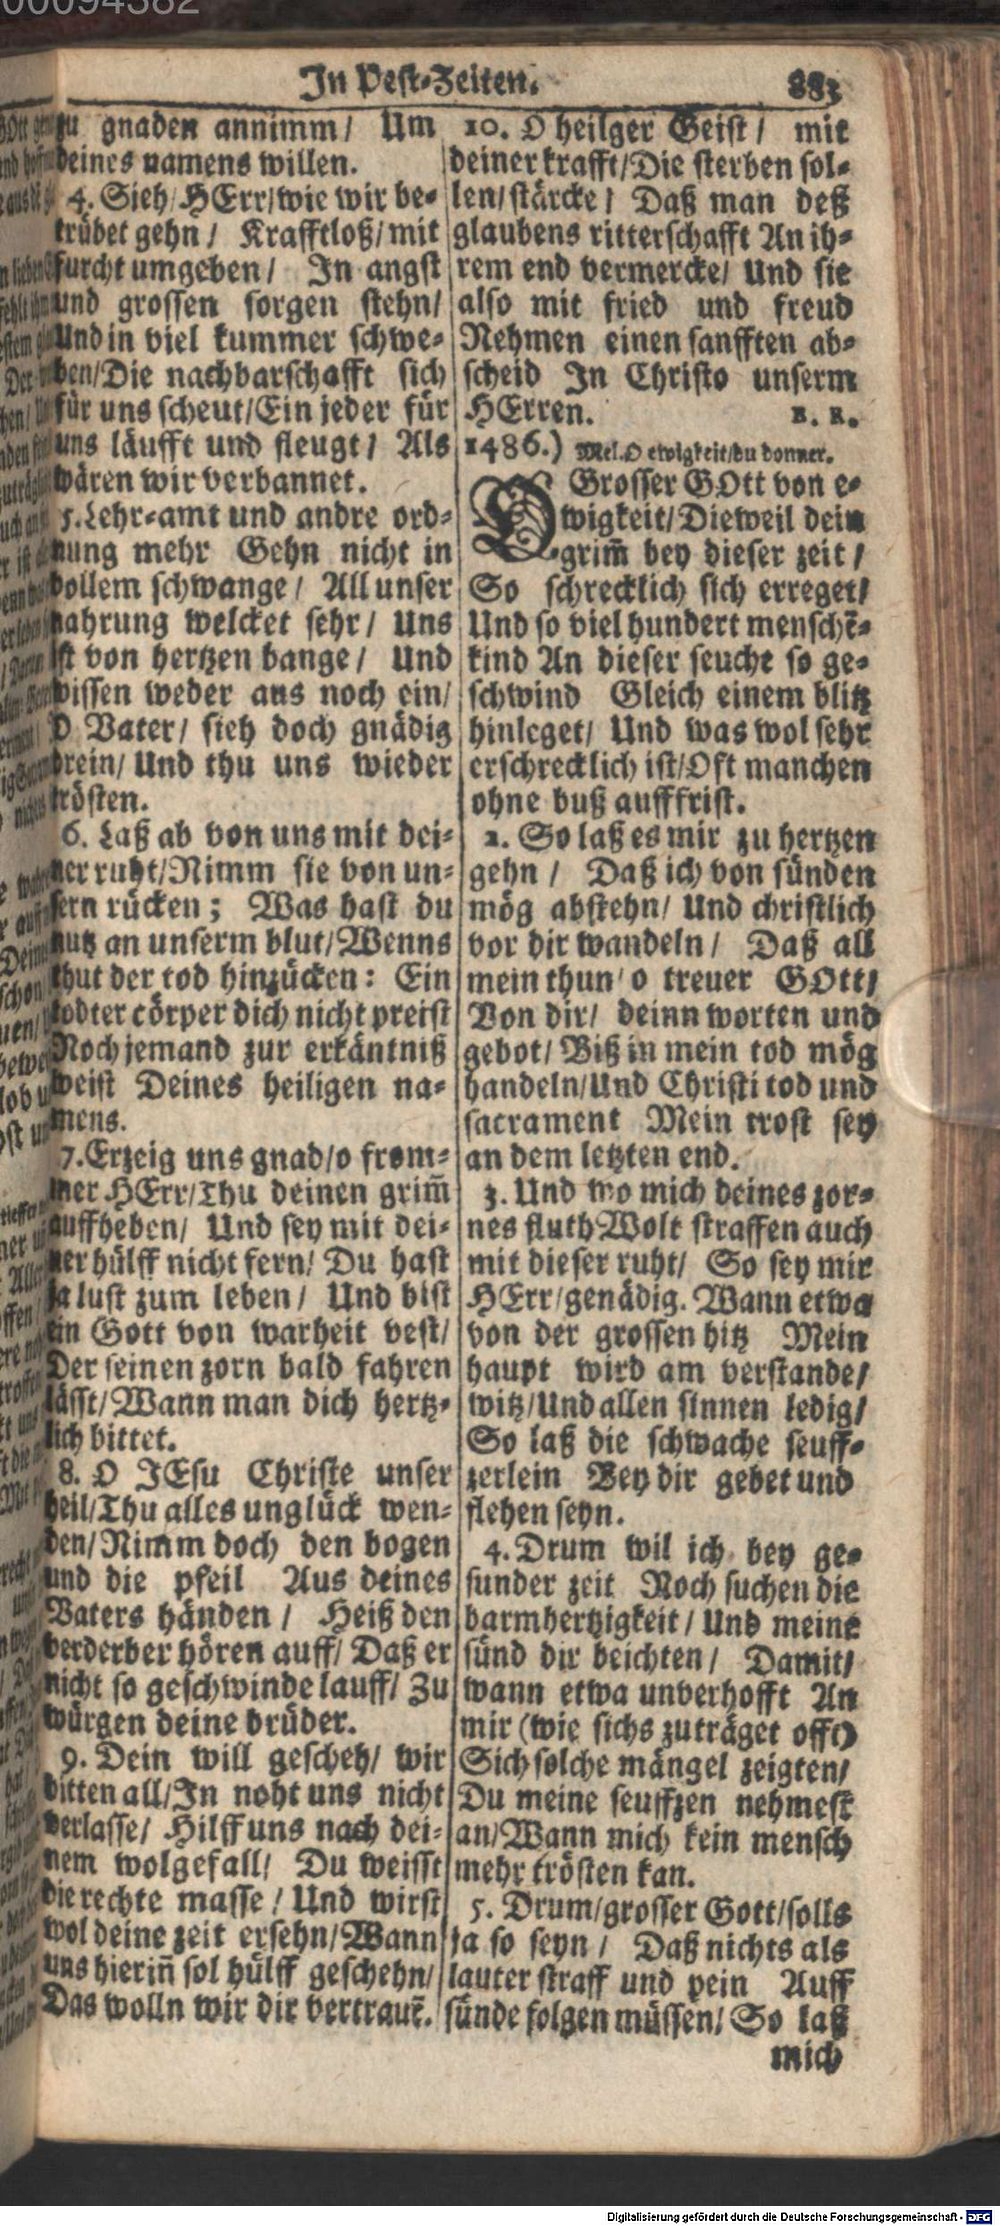 00094382
In Pest-Zeiten. 883
zu gnaden annimm/ Um
deines namens willen.
4. Sieh/HErr/wie wir be-
trübet gehn/ Krafftloß/mit
furcht umgeben/ In angst
und grossen sorgen stehn/
Und in viel kummer schwe-
ben/Die nachbarschafft sich
für uns scheut/Ein jeder für
uns läufft und fleugt/ Als
wären wir verbannet.
5. Lehr-amt und andre ord-
nung mehr Gehn nicht in
vollem schwange/ All unser
nahrung welcket sehr/ Uns
ist von hertzen bange/ Und
wissen weder aus noch ein/
O Vater/ sieh doch gnädig
drein/ Und thu uns wieder
trösten.
6. Laß ab von uns mit dei-
ner ruht/Nimm sie von un-
sern rücken; Was hast du
nutz an unserm blut/Wenns
thut der tod hinzücken: Ein
todter cörper dich nicht preist
Noch jemand zur erkäntniß
weist Deines heiligen na-
mens.
7. Erzeig uns gnad/o from-
mer HErr/Thu deinen grim̃
auffheben/ Und sey mit dei-
ner hülff nicht fern/ Du hast
ja lust zum leben/ Und bist
ein Gott von warheit vest/
Der seinen zorn bald fahren
lässt/Wann man dich hertz-
lich bittet.
8. O JEsu Christe unser
heil/Thu alles unglück wen-
den/Nimm doch den bogen
und die pfeil Aus deines
Vaters händen/ Heiß den
verderber hören auff/ Daß er
nicht so geschwinde lauff/ Zu
würgen deine brüder.
9. Dein will gescheh/ wir
bitten all/In noht uns nicht
verlasse/ Hilff uns nach dei-
nem wolgefall/ Du weisst
die rechte masse/ Und wirst
wol deine zeit ersehn/Wann
uns hierin̄ sol hülff geschehn/
Das wolln wir dir vertrauē.
10. O heilger Geist/ mit
deiner krafft/Die sterben sol-
len/stärcke/ Daß man deß
glaubens ritterschafft An ih-
rem end vermercke/ Und sie
also mit fried und freud
Nehmen einen sanfften ab-
scheid In Christo unserm
HErren. B. R.
1486.) Mel. O ewigkeit/du donner.
O Grosser GOtt von e-
wigkeit/Dieweil dein
grim̃ bey dieser zeit/
So schrecklich sich erreget/
Und so viel hundert menschē-
kind An dieser seuche so ge-
schwind Gleich einem blitz
hinleget/ Und was wol sehr
erschrecklich ist/Oft manchen
ohne buß aufffrist.
2. So laß es mir zu hertzen
gehn/ Daß ich von sünden
mög abstehn/ Und christlich
vor dir wandeln/ Daß all
mein thun/ o treuer GOtt/
Von dir/ deinn worten und
gebot/ Biß in mein tod mög
handeln/Und Christi tod und
sacrament Mein trost sey
an dem letzten end.
3. Und wo mich deines zor-
nes fluth Wolt straffen auch
mit dieser ruht/ So sey mir
HErr/genädig. Wann etwa
von der grossen hitz Mein
haupt wird am verstande/
witz/Und allen sinnen ledig/
So laß die schwache seuff-
zerlein Bey dir gebet und
flehen seyn.
4. Drum wil ich bey ge-
sunder zeit Noch suchen die
barmhertzigkeit/ Und meine
sünd dir beichten/ Damit/
wann etwa unverhofft An
mir (wie sichs zuträget offt)
Sich solche mängel zeigten/
Du meine seuffzen nehmest
an/Wann mich kein mensch
mehr trösten kan.
5. Drum/grosser Gott/solls
ja so seyn/ Daß nichts als
lauter straff und pein Auff
sünde folgen müssen/ So laß
mich
Digitalisierung gefördert durch die Deutsche Forschungsgemeinschaft - DFG